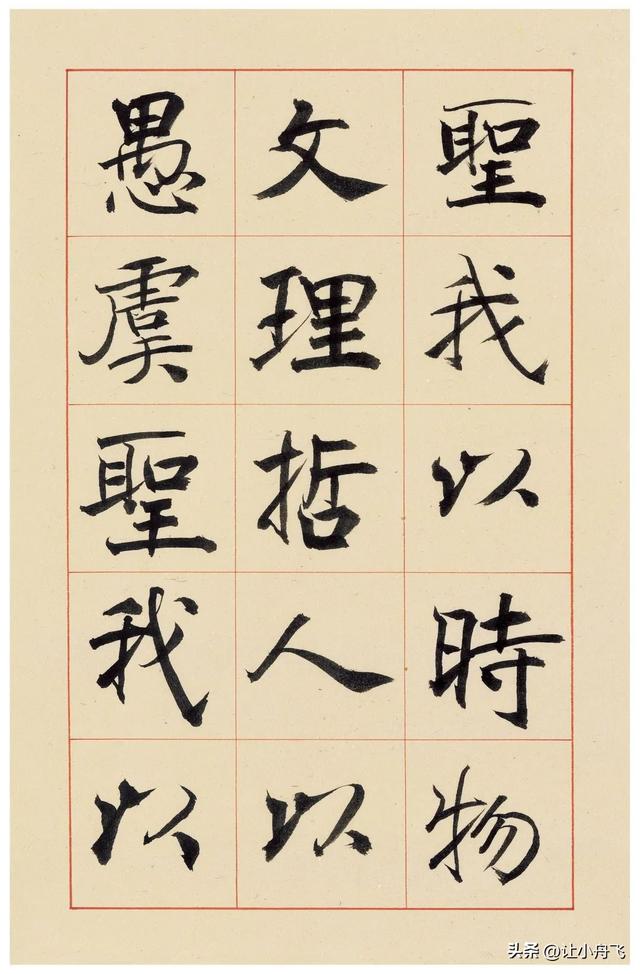 聖我以時物
文理哲人以
愚虞聖我以
头条 @让小舟飞